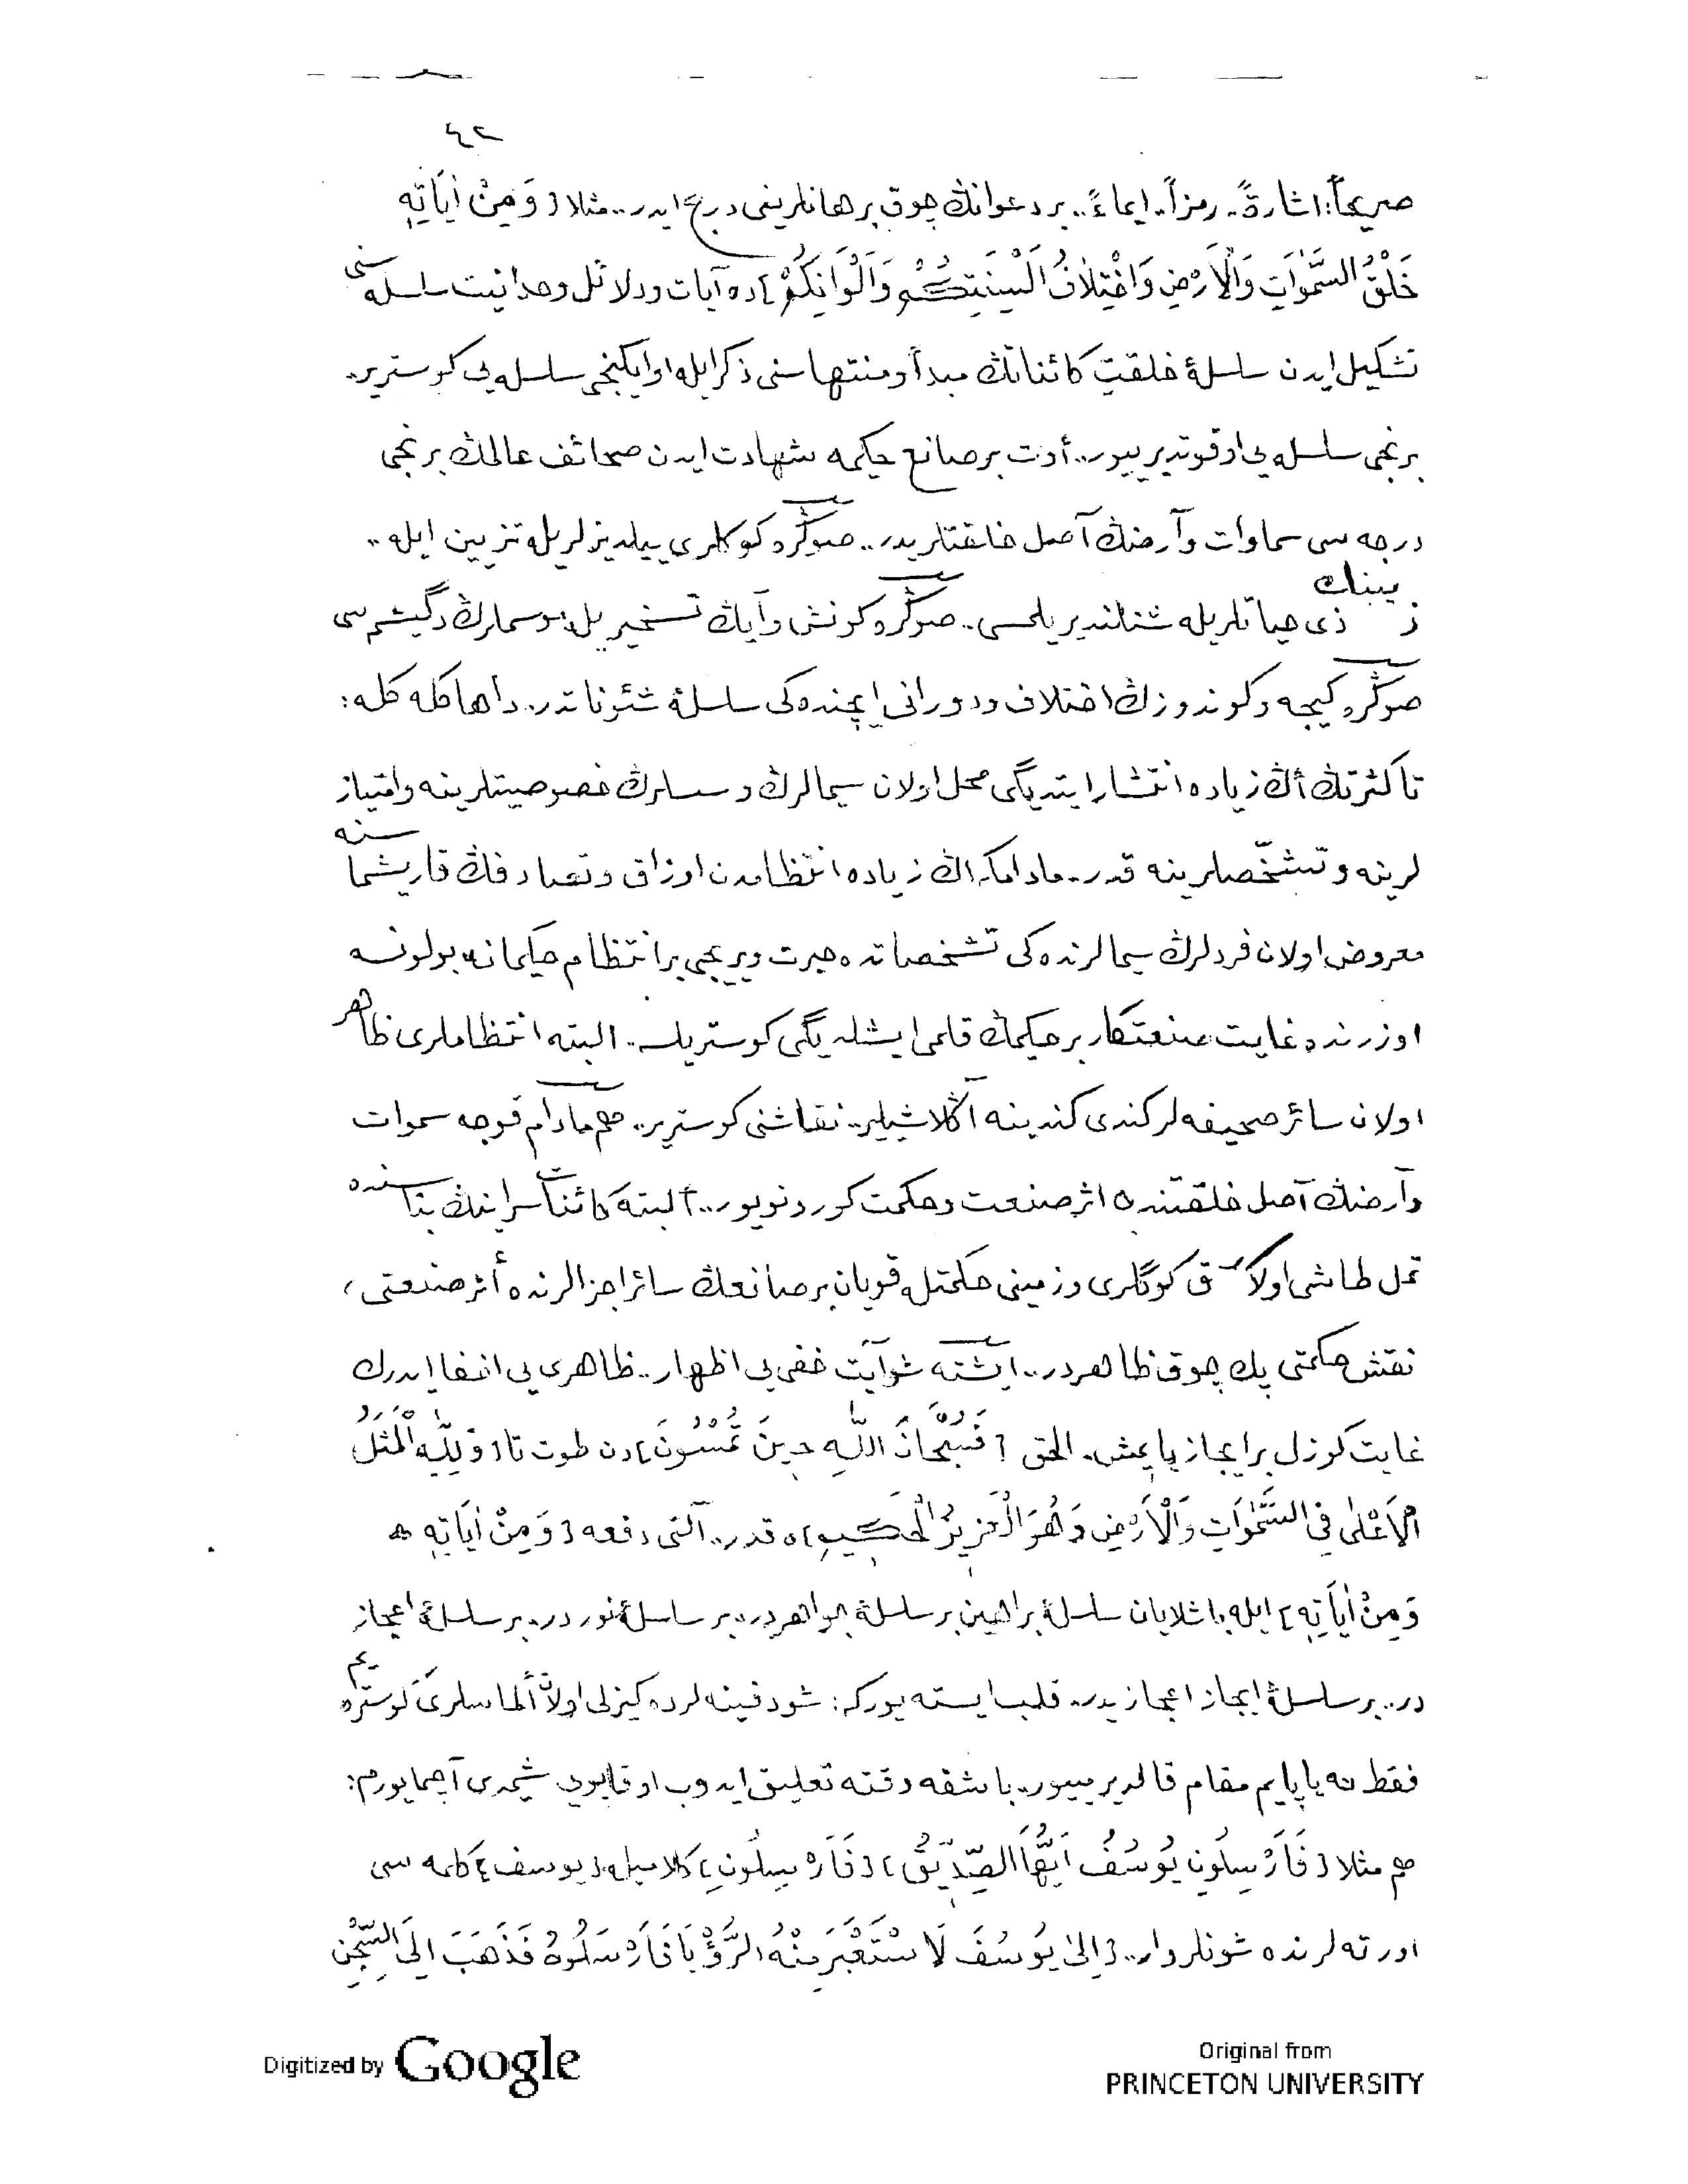 ٤٢
صريحاً: اشارةً.. رمزاً.. ايماءً.. بر دعوانڭ چوق برهانلرينى درج ايدر.. مثلا [ وَمِنْ اٰيَاتِهِ
خَلْقُ السَّمٰوَاتِ وَالْاَرْضِ وَاخْتِلَافُ اَلْسِنَتِكُمْ وَاَلْوَانِكُمْ ] ده آيات و دلائل وحدانيت سلسله سنى
تشكيل ايدن سلسلۀ خلقت كائناتڭ مبدأ و منتهاسنى ذكر ايله او ايكنجى سلسله يى كوسترير.
برنجى سلسله يى اوقوتديرييور.. أوت بر صانع حكيمه شهادت ايدن صحائف عالمڭ برنجى
درجه سى سماوات و آرضڭ آصل خلقتلريدر.. صوڭره كوكلرى ييلديزلريله تزيين ايله ..
زمينڭ ذى حياتلريله شنلنديريلمسى.. صوڭره كونش و آيڭ تسخيريله موسملرڭ دگيشمه سى
صوڭره كيجه و كوندوزڭ اختلاف و دورانى ايچنده كى سلسلۀ شئوناتدر. داها كله كله :
تا كثرتڭ أڭ زياده انتشار ايتديگى محل اولان سيمالرڭ و سسلرڭ خصوصيتلرينه و امتياز
لرينه و تشخّصلرينه قدر.. مادامكه اڭ زياده انتظامدن اوزاق و تصادفڭ قاريشماسنه
معروض اولان فردلرڭ سيمالرنده كى تشخصاتده حيرت ويريجى بر انتظام حكيمانه بولونسه
اوزرنده غايت صنعتكار بر حكيمڭ قلمى ايشله ديگى كوستريلسه.. البته انتظاملرى ظاهر
اولان سائر صحيفه لر كندى كندينه آڭلاشيلير. نقاشنى كوسترير.. هم مادام قوجه سموات
و آرضڭ آصل خلقتنده اثر صنعت و حكمت كوردنويور.. ألبته كائنات سراينڭ بناسنده
تمل طاشى اولارق كوكلرى و زمينى حكمتله قويان بر صانعڭ سائر اجزالرنده أثر صنعتى ،
نقش حكمتى پك چوق ظاهردر.. ايشته شو آيت خفى يى اظهار.. ظاهرى يى اخفا ايدرك
غايت كوزل بر ايجاز ياپمش. الحق [ فَسُبْحَانَ اللّٰهِ حِينَ تُمْسُونَ ] دن طوت تا [ وَلِلّٰهِ الْمَثَلُ
الْاَعْلٰى فِى السَّمٰوَاتِ وَالْاَرْضِ وَهُوَ الْعَزِيزُ الْحَكِيمُ ] ه قدر.. آلتى دفعه [ وَمِنْ اٰيَاتِهِ *
وَمِنْ اٰيَاتِهِ ] ايله باشلايان سلسلۀ براهين بر سلسلۀ جواهردر. بر سلسلۀ نوردر. بر سلسلۀ اعجاز
در.. بر سلسلۀ ايجاز اعجازيدر. قلب ايسته يوركه : شو دفينه لرده كيزلى اولان ألماسلرى كوستره يم
فقط نه ياپايم مقام قالديرمييور. باشقه وقته تعليق ايدوب او قاپويى شيمدى آچمايورم :
هم مثلا [ فَاَرْسِلُونِ يُوسُفُ اَيُّهَا الصِّدِّيقُ ] [ فَاَرْسِلُونِ ] كلاميله [ يوسف ] كلمه سى
اورته لرنده شونلر وار.. [ اِلٰى يُوسُفَ لَاَسْتَعْبِرَ مِنْهُ الرُّؤْيَا فَاَرْسَلُوهُ فَذَهَبَ اِلَى السِّجْنِ
Digitized by Google
Original from
PRINCETON UNIVERSITY